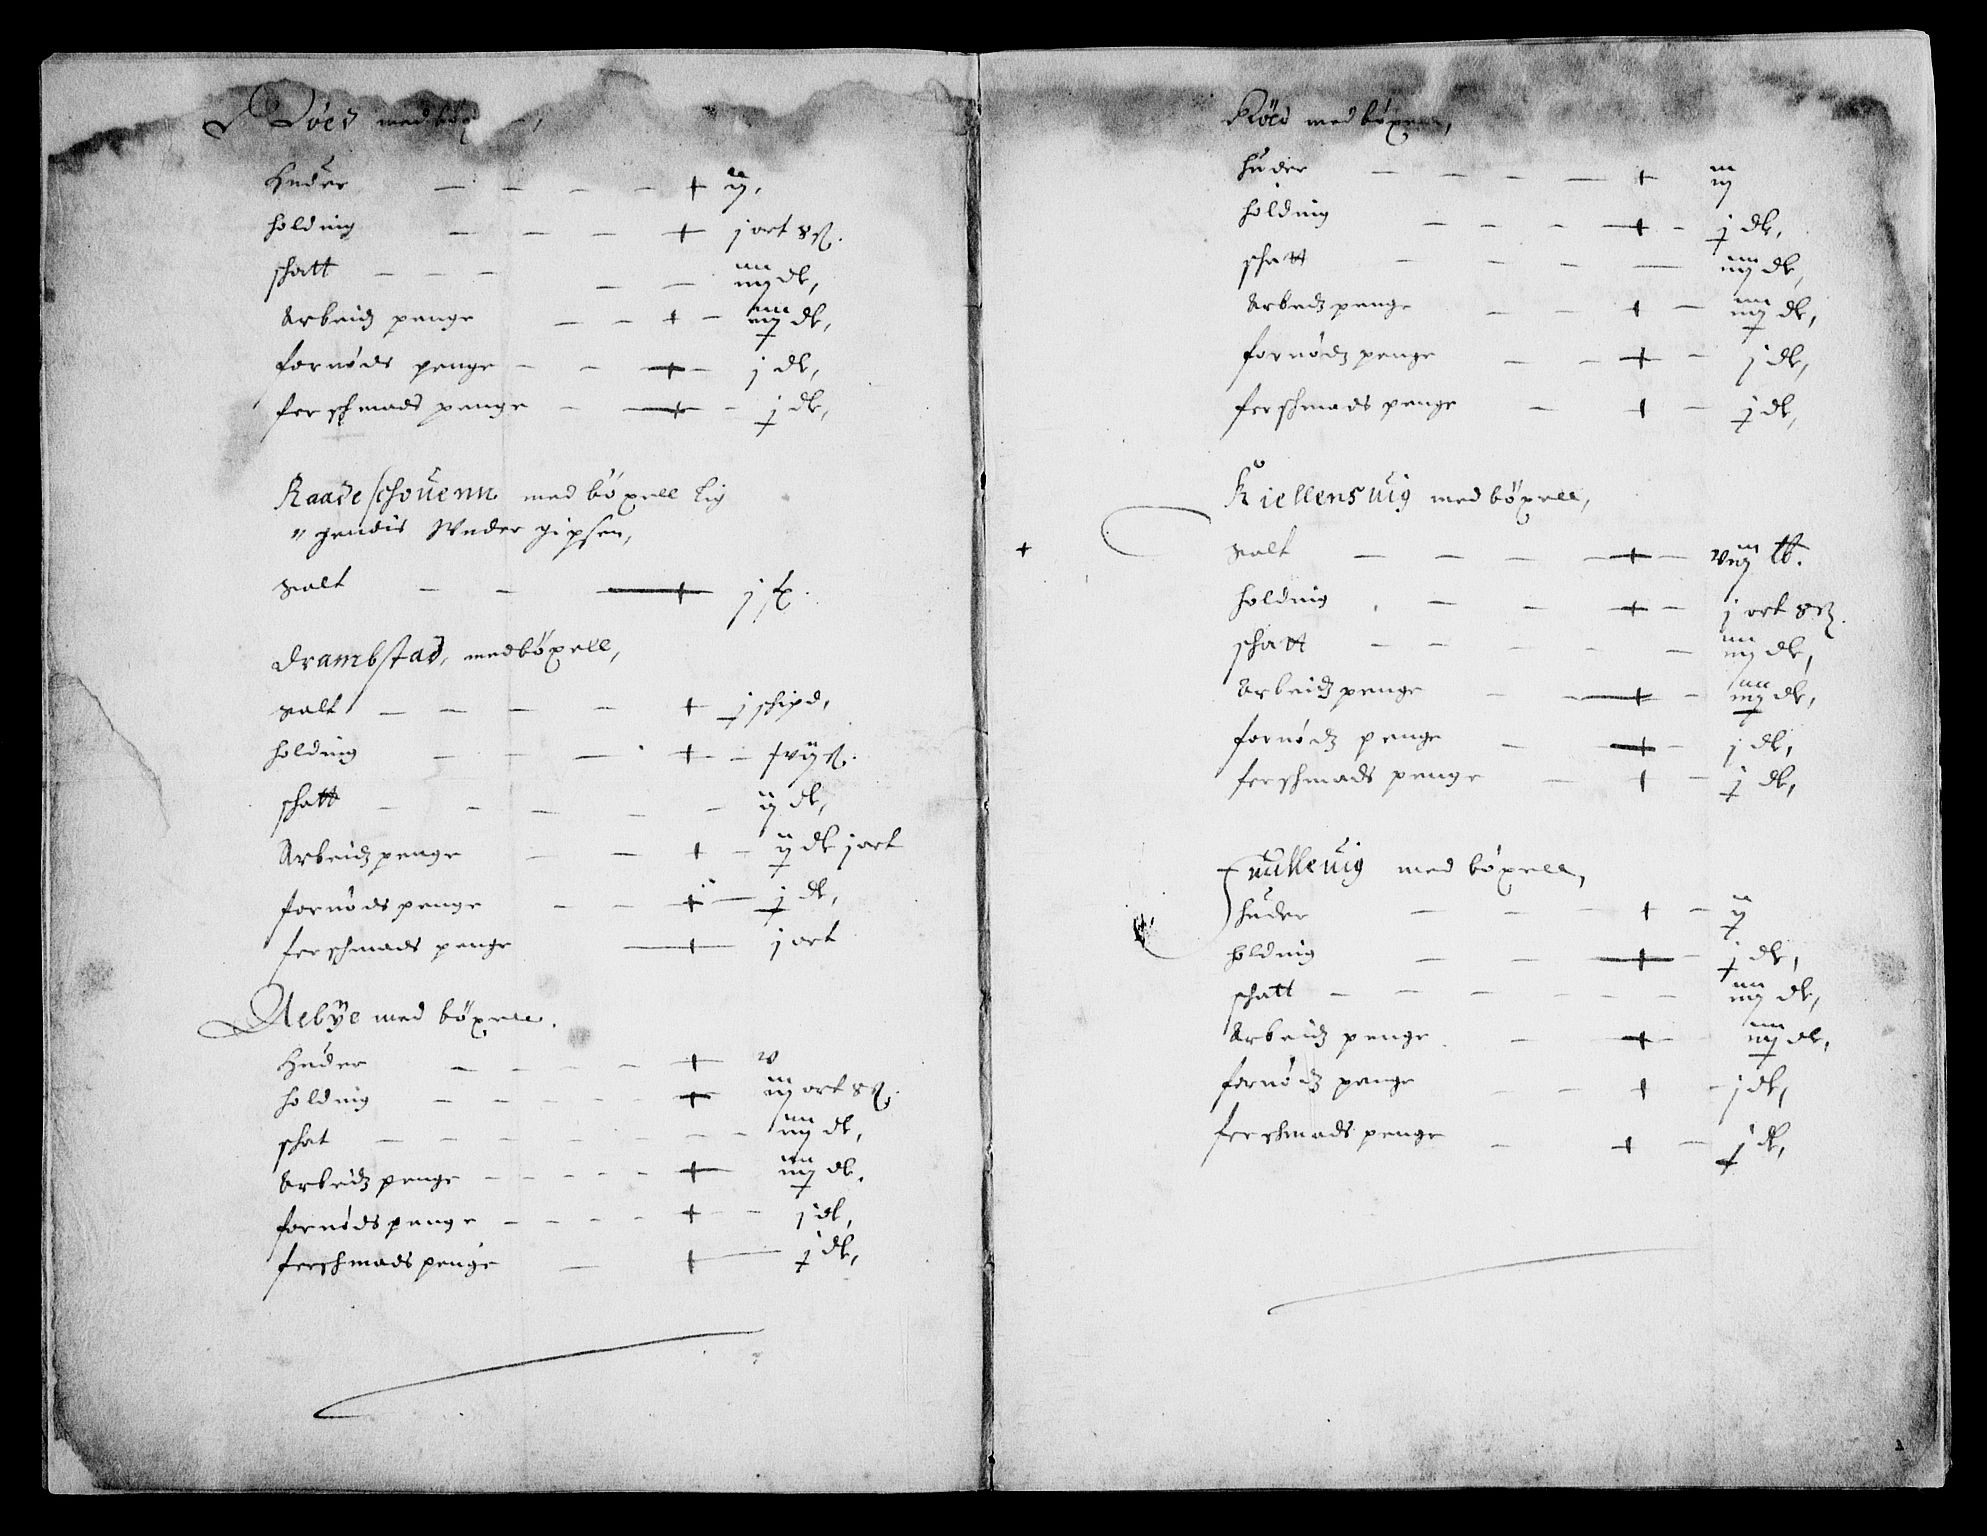 med böx
Huder + ij,
holding + j ort 8 ß.
schatt iiij dlr,
Arbeidz penge + iiij dlr,
fornøds penge + j dlr,
ferschmads penge + j dlr,
Raadeschouenn med böxell lig
" gendis Wnder Gipsen,
Salt + j
Drambstad, med böxell,
Salt + j schipd,
holding + ß.
schatt ij dlr,
Arbeidz penge + ij dlr j ort
fornøds penge + j dlr,
ferschmads penge + j ort
Aebÿe med böxell.
Huder + v
holding + iij ort 8 ß.
schat iiij dlr,
Arbeidz penge + iiij dlr.
fornøds penge + j dlr,
ferschmads penge + j dlr,
Röed med böxell,
huder + iij
holding + j dlr,
schatt iiij dlr,
Arbedz penge + iiij dlr,
fornødz penge + j dlr,
ferschmads penge + j dlr,
Kiellensuig med böxell,
+ Salt + viij tt.
holding + j ort 8 ß.
schatt iiij dlr,
Arbeidz penge + iiij dlr,
fornødz penge + j dlr,
ferschmads penge + j dlr,
med böxell,
huder + ij
holding + j dlr,
schatt iiij dlr,
Arbeidz penge + iiij dlr,
fornødz penge + j dlr,
ferschmads penge + j dlr,